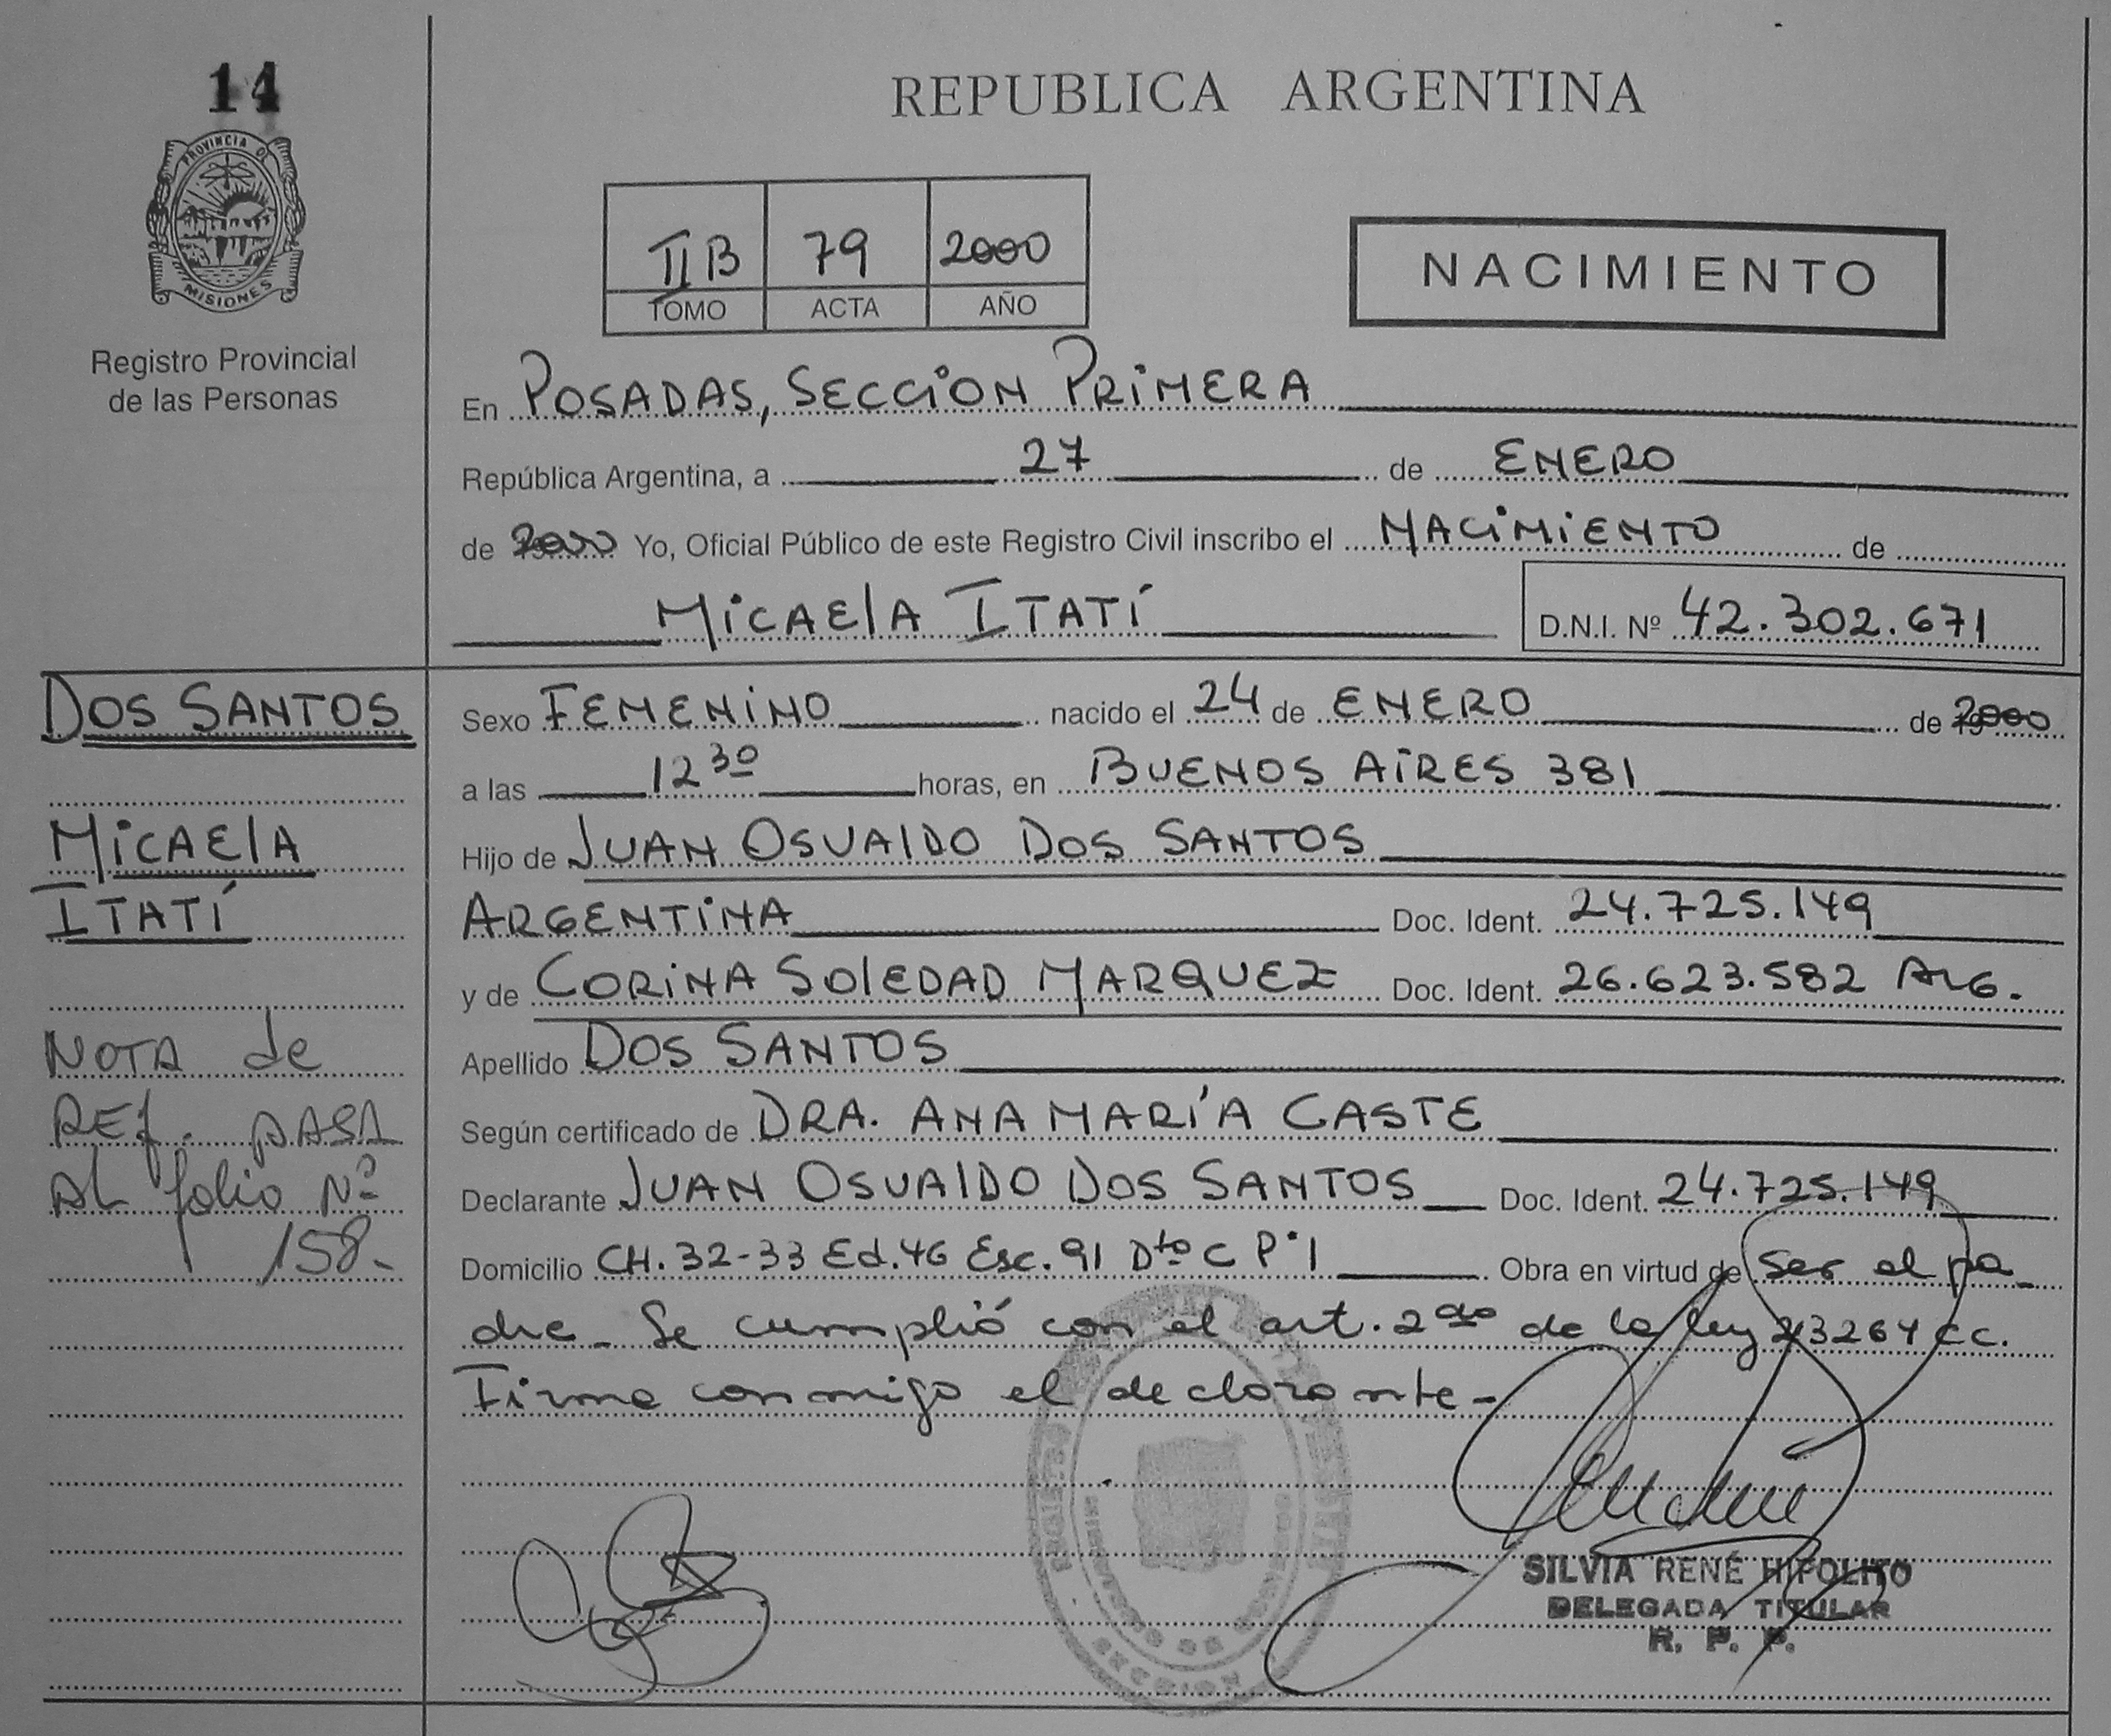 14
REPUBLICA ARGENTINA
PROVINCIA DE
MISIONES
Registro Provincial
de las Personas
II B 79 2000
TOMO ACTA AÑO
NACIMIENTO
En POSADAS, SECCION PRIMERA
República Argentina, a 27 de ENERO
de 2000 Yo, Oficial Público de este Registro Civil inscribo el NACIMIENTO de
MICAELA ITATÍ D.N.I. Nº 42.302.671
DOS SANTOS
MICAELA
ITATÍ
NOTA de
REF. PASA
AL folio Nº
158.-
Sexo FEMENINO nacido el 24 de ENERO de 2000
a las 12 30 horas, en BUENOS AIRES 381
Hijo de JUAN OSVALDO DOS SANTOS
ARGENTINA Doc. Ident. 24.725.149
y de CORINA SOLEDAD MARQUEZ Doc. Ident. 26.623.582 ARG.
Apellido DOS SANTOS
Según certificado de DRA. ANA MARÍA CASTE
Declarante JUAN OSVALDO DOS SANTOS Doc. Ident. 24.725.149
Domicilio CH. 32-33 Ed. 46 Esc. 91 Dto C P° 1 Obra en virtud de ser el pa-
dre - Se cumplió con el art. 2do de la ley 23264 CC.
Firma conmigo el declarante -
SILVIA RENÉ HIPOLITO
DELEGADA TITULAR
R. P. P.